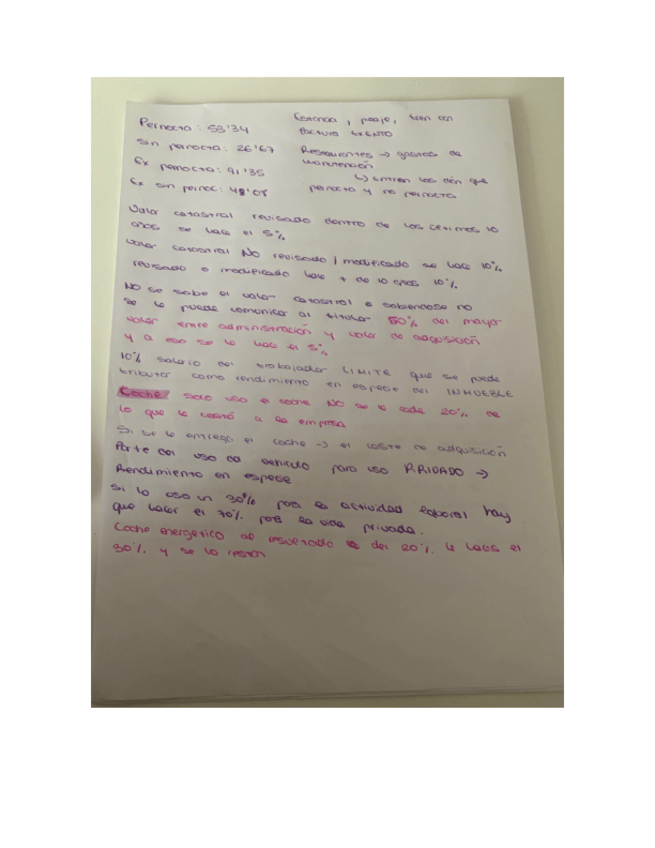 Pernocta: 53'34
Sin pernocta: 26'67
Ex pernocta: 91'35
Ex sin pernoc: 48'08
Estancia, peaje, tren con
factura EXENTO
Restaurantes → gastos de
manutención
↳ entren los dón que
pernocta y no pernocta
Valor catastral revisado dentro de los últimos 10
años se hace el 5%
Valor catastral NO revisado / modificado se hace 10%
revisado o modificado hace + de 10 años 10%.
NO se sabe el valor catastral o sabiendose no
se le puede comunicar al titular 50% del mayor
valor entre administración y valor de adquisición
y a eso se le hace el 5%
10% salario del trabajador LIMITE que se puede
tributar como rendimiento en especie del INMUEBLE
Coche/ solo usa el coche NO se le cede 20% de
lo que le costó a la empresa
Si se le entrega el coche → el coste de adquisición
Parte del uso del vehiculo para uso PRIVADO →
Rendimiento en especie
Si lo uso un 30% para la actividad laboral hay
que hacer el 70% para la vida privada.
Coche energético al resultado del 20% le haces el
30% y se lo restan